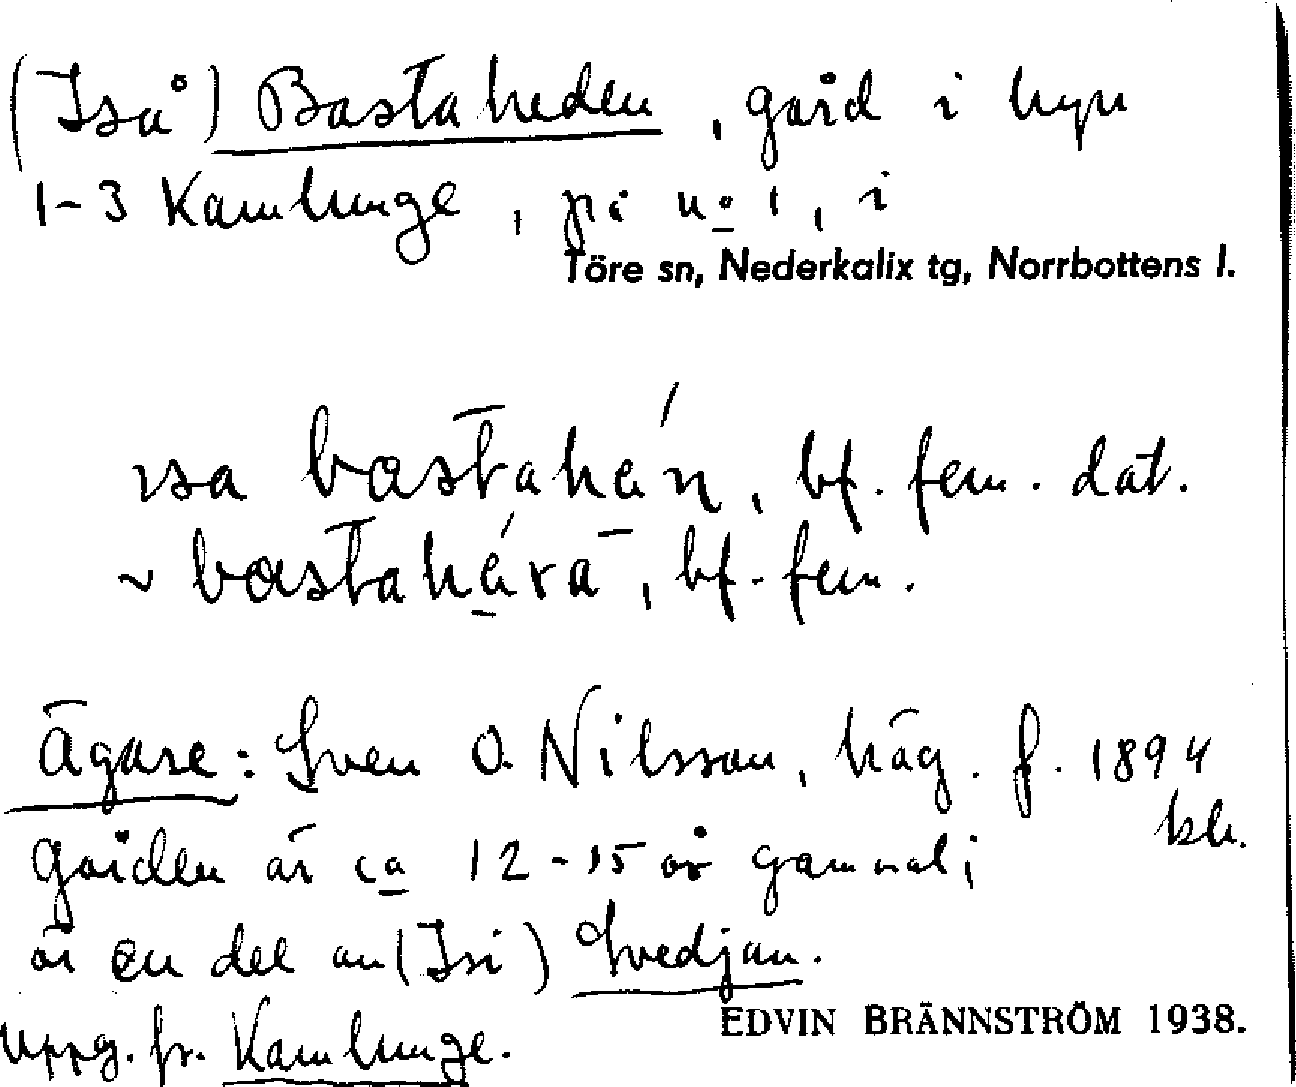 (Iså) Bastaheden, gård i byn
1-3 Kamlunge, på no 1, i
Töre sn, Nederkalix tg, Norrbottens l.
ɪsa bastahén, bf. fem. dat.
~ bastahéra, bf. fem.
Ägare: Sven O. Nilsson, häg. f. 1894
gården är ca 12-15 år gammal;
är en del av (Isi) Svedjan.
Uppg. fr. Kamlunge.
EDVIN BRÄNNSTRÖM 1938.